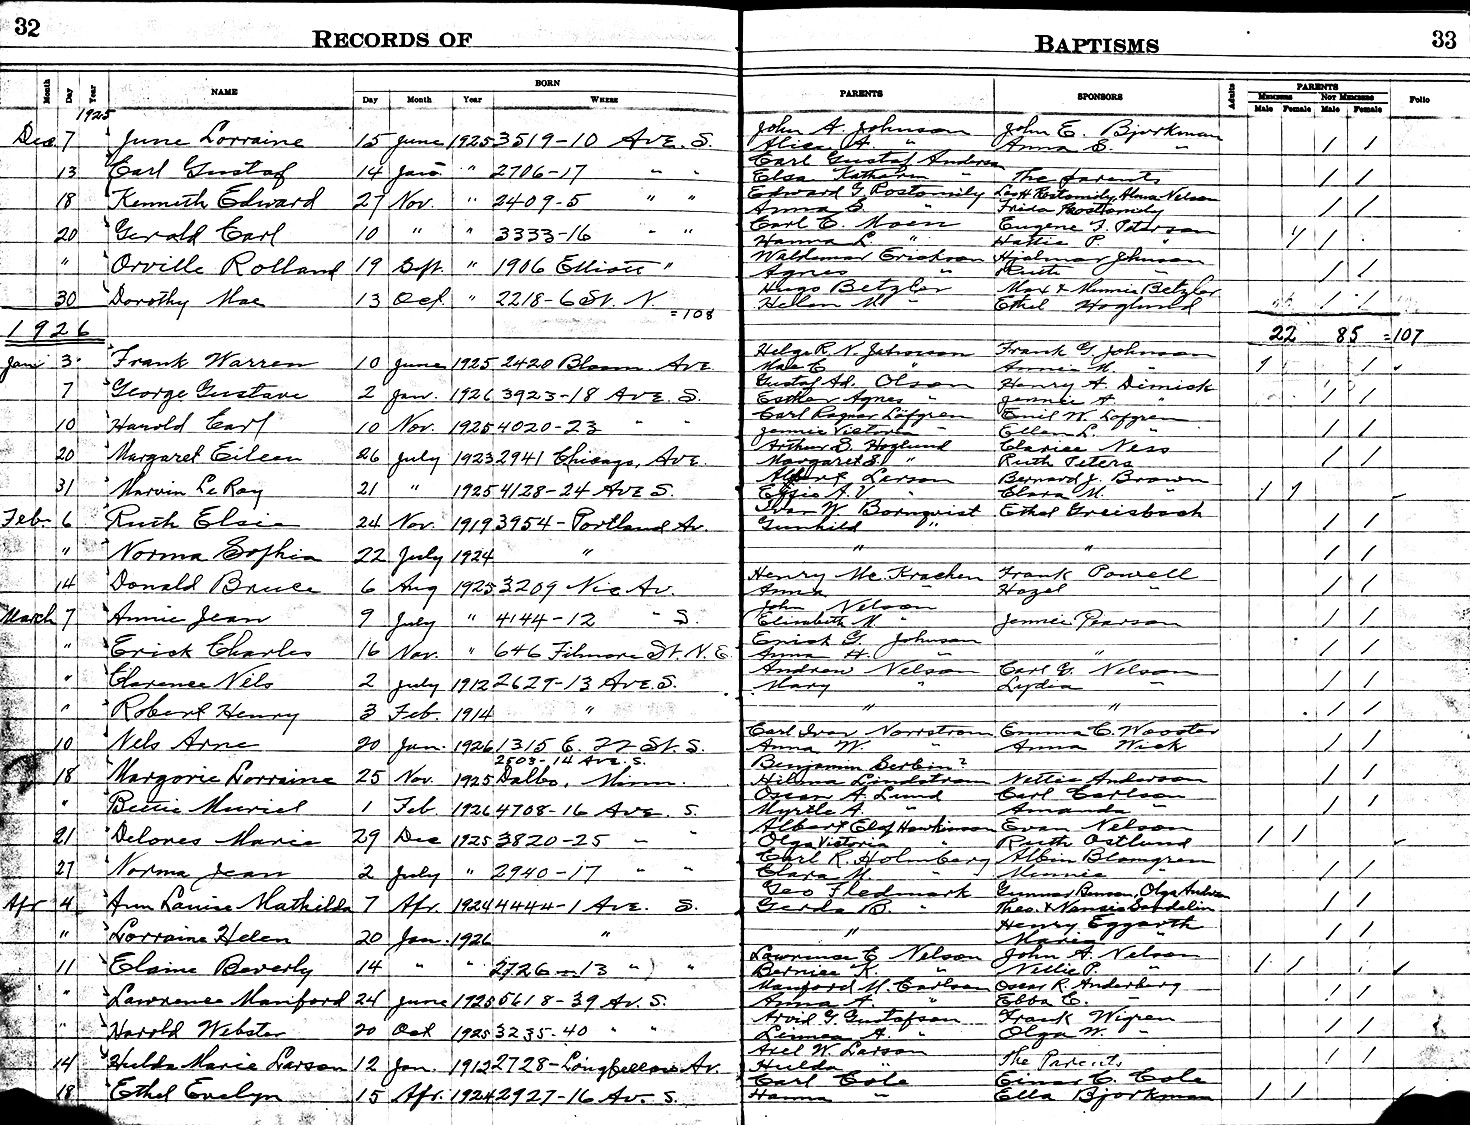 32
RECORDS OF
BAPTISMS
33
Month Day Year NAME BORN Day Month Year WHERE PARENTS SPONSORS Adults PARENTS MEMBERS Male Female NOT MEMBERS Male Female Folio
1925
Dec. 7 June Lorraine 15 June 1925 3519-10 AVE. S. John A. Johnson John E. Bjorkman 1 1
Alice A. " Anna S. "
13 Carl Gustaf 14 " 2706-17 " " Carl Gustaf Andrea 1 1
Elsa Katherin " The Parents
18 Kenneth Edward 27 Nov. " 2409-5 " " Edward G Rostomily Leo H Rostomily, Alma Nelson 1 1
Anna S. " Frida Rostomily
20 Gerald Carl 10 " " 3333-16 " " Carl E. Moen Eugene F. Peterson 1 1
Hanna L. " Hattie P. "
" Orville Rolland 19 Sept. " 1906 Elliott " Waldemar Erickson Hjalmar Johnson 1 1
Agnes " Ruth "
30 Dorothy Mae 13 Oct " 2218-6 St. N. Hugo Betzler Max & Minnie Betzler 1 1
Helen M. " Ethel Hoglund
=108
1926 22 85 =107
Jan 3 Frank Warren 10 June 1925 2420 Bloom AVE. Helge R. N. Johnson Frank G Johnson 1 1
Mae E " Annie M. "
7 George Gustave 2 Jan. 1926 3923-18 AVE. S. Gustaf Ad. Olson Henry A. Dimick 1 1
Esther Agnes " Jennie A. "
10 Harold Earl 10 Nov. 1925 4020-23 " " Carl Ragnar Löfgren Emil W. Lofgren 1 1
Jennie Victoria " Ellen L. "
20 Margaret Eileen 26 July 1923 2941 Chicago, AVE. Arthur S. Hoglund Clarice Ness 1 1
Margaret S. " Ruth Peters
31 Marvin LeRoy 21 " 1925 4128-24 AVE S. Albert Larson Bernard J. Brown 1 1
Effie A. V. " Clara M. "
Feb. 6 Ruth Elsie 24 Nov. 1919 3954-Portland Av. Ivar W Bornquist Ethel Greisbach 1 1
Gunhild "
" Norma Sophia 22 July 1924 " " " 1 1
14 Donald Bruce 6 Aug 1925 3209 Nic Av. Henry Mc. Krachen Frank Powell 1 1
Anna " Hazel "
March 7 Annie Jean 9 July " 4144-12 " S. John Nelson 1 1
Elisabeth M. " Jennie Pearson
" Erick Charles 16 Nov. " 646 Filmore St. N. E. Erick G. Johnson 1 1
Anna H. " "
" Clarence Nels 2 July 1912 2629-13 AVE. S. Andrew Nelson Carl G. Nelson 1 1
Mary " Lydia "
" Robert Henry 3 Feb. 1914 " " " 1 1
10 Nels Arne 20 Jan. 1926 1315 E. 22 St. S. Carl Ivar Norrstrom Emma C. Wooster 1 1
Anna W. " Anna Wick
2503-14 AVE. S.
18 Margorie Lorraine 25 Nov. 1925 Dalbo, Minn. Benjamin Berbin? 1 1
Hilma Lindstrom Nettie Anderson
" Bettie Muriel 1 Feb. 1926 4708-16 AVE. S. Oscar A. Lund Carl Carlson 1 1
Myrtle A. " Amanda "
21 Delores Marie 29 Dec 1925 3820-25 " " Albert Elof Hawkinson Evan Nelson 1 1
Olga Victoria " Ruth Ostlund
27 Norma Jean 2 July " 2940-17 " " Earl R. Holmberg Albin Blomgren 1 1
Clara M. " Minnie "
Apr 4 Ann Louise Mathilda 7 Apr. 1924 4444-1 AVE. S. Geo Fledmark Gunnar Benson, Olga 1 1
Gerda B. " Theo. & Nannie Sandelin
" Lorraine Helen 20 Jan. 1926 " " Henry Eggarth 1 1
Marie "
11 Elaine Beverly 14 " " 2726-13 " " Lawrence E Nelson John A. Nelson 1 1
Bernice K. " Nellie P. "
" Lawrence Manford 24 June 1925 5618-39 Av. S. Manford M. Carlson Oscar R. Anderberg 1 1
Anna A. " Ebba E. "
" Harold Webster 20 Oct 1925 3235-40 " " Arvid G Gustafson Frank Wigren 1 1
Linnea A. " Olga W. "
14 Hulda Marie Larson 12 Jan. 1912 2728-Longfellow Av. Axel W. Larson The Parents 1 1
Hulda "
18 Ethel Evelyn 15 Apr. 1924 2927-16 Av. S. Carl Cole Einar C. Cole 1 1
Hanna " Ella Bjorkman